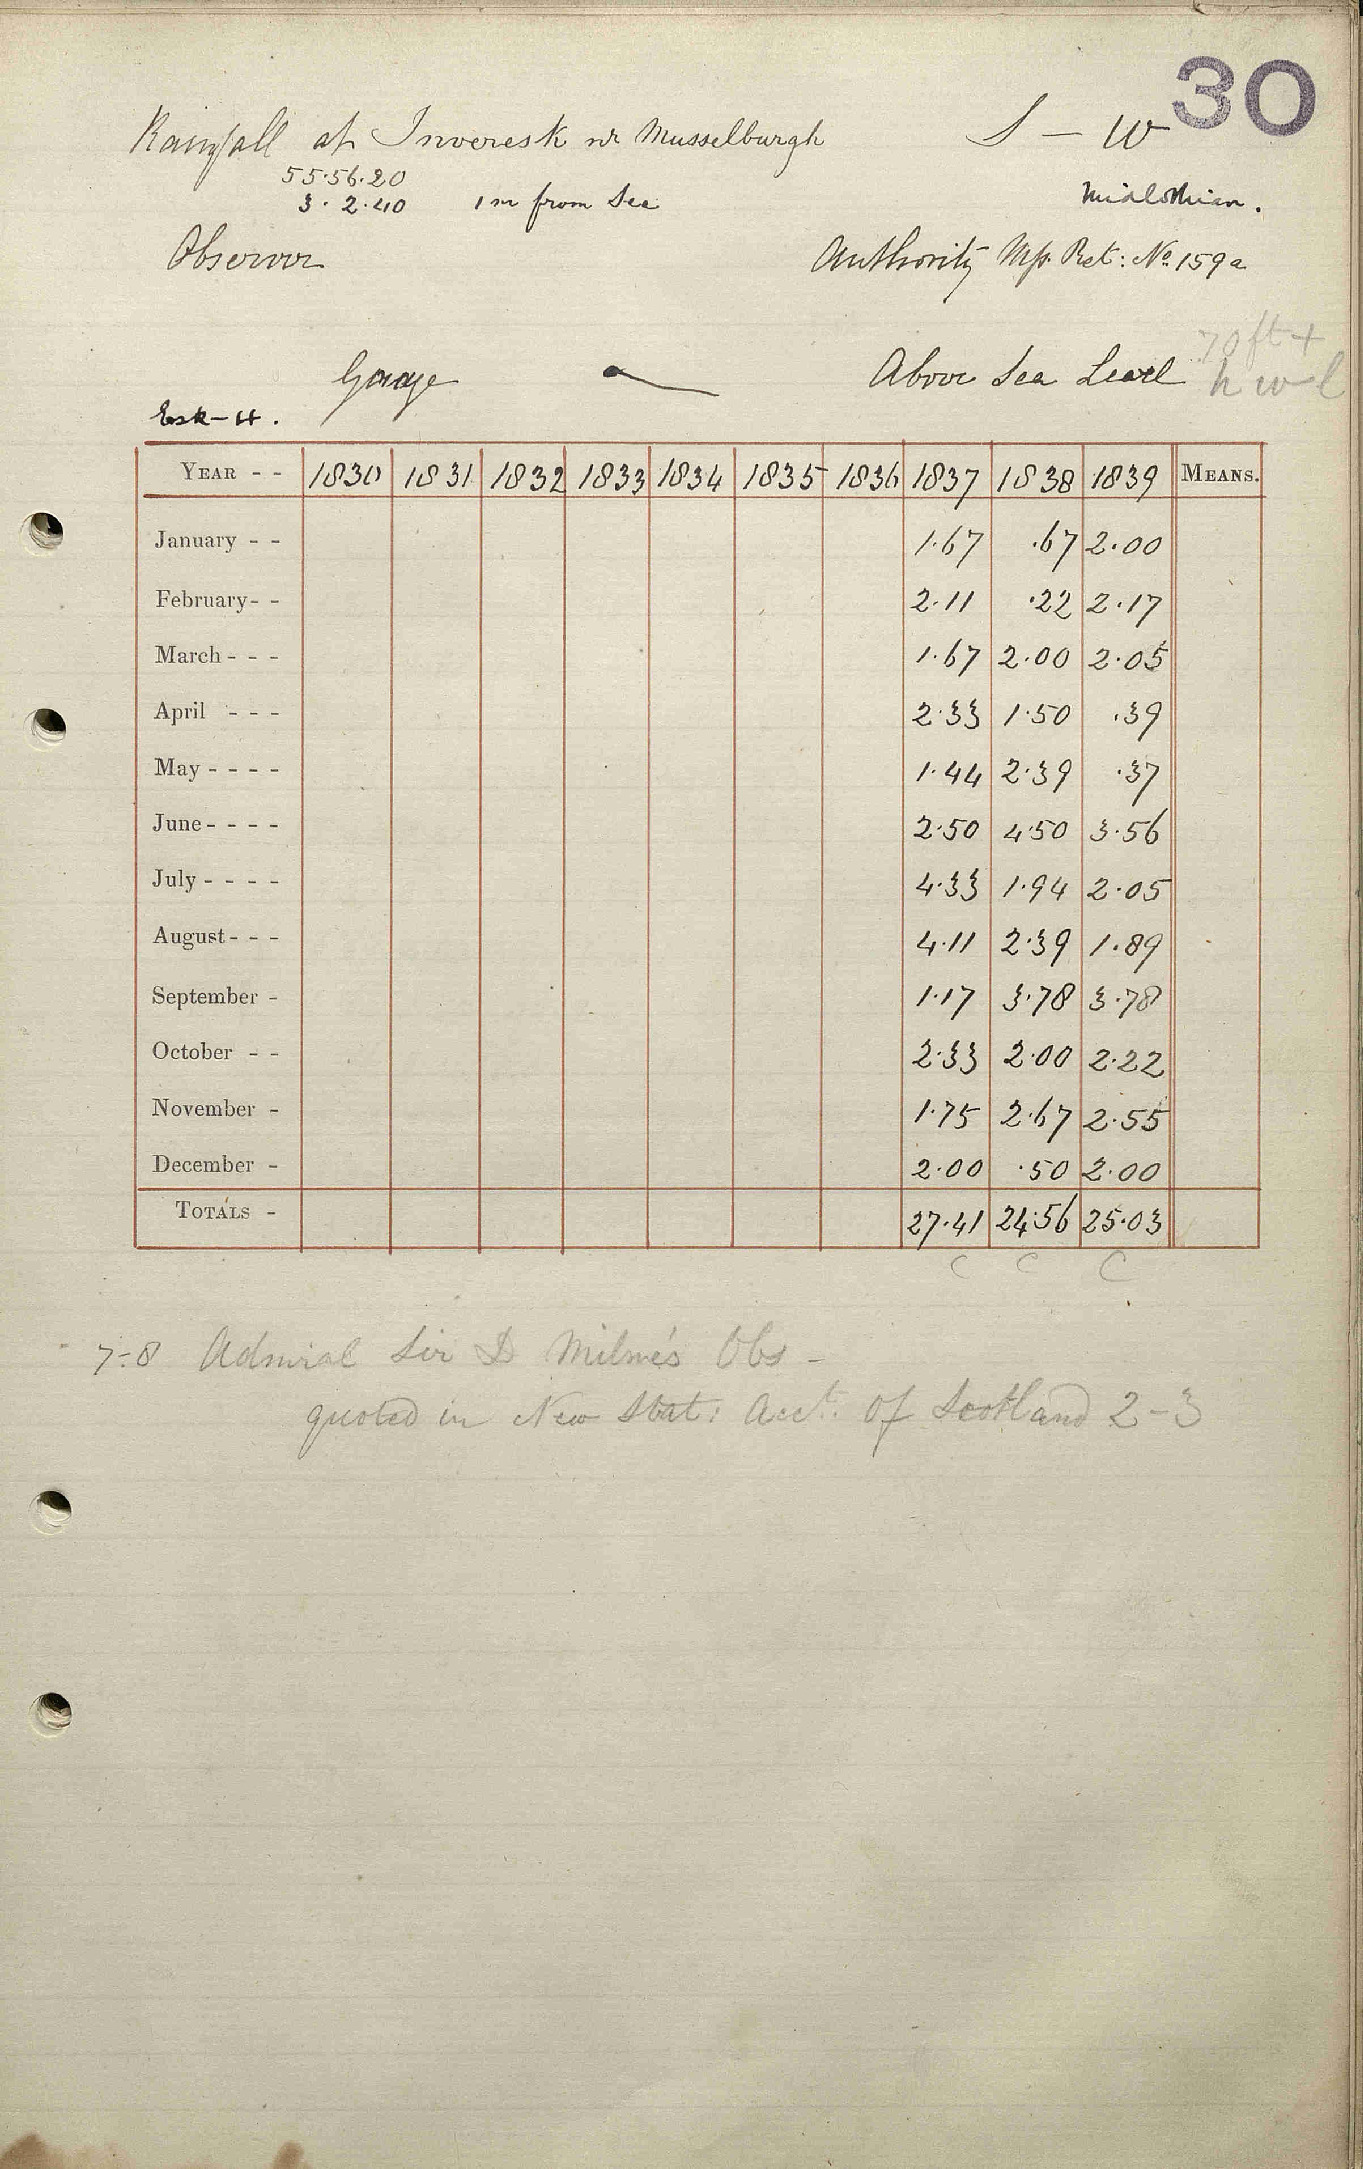 30
Rainfall at Inveresk nr Musselburgh S – W
55.56.20
3.2.40 1 m from Sea Midlothian.
Observer Authority Mss. Ret: No. 159a
70 ft +
Gauge Above Sea Level h w l
Esk-H.
YEAR - - 1830 1831 1832 1833 1834 1835 1836 1837 1838 1839 MEANS.
January - - 1.67 .67 2.00
February - - 2.11 .22 2.17
March - - - 1.67 2.00 2.05
April - - - 2.33 1.50 .39
May - - - - 1.44 2.39 .37
June - - - - 2.50 4.50 3.56
July - - - - 4.33 1.94 2.05
August - - - 4.11 2.39 1.89
September - 1.17 3.78 3.78
October - - 2.33 2.00 2.22
November - 1.75 2.67 2.55
December - 2.00 .50 2.00
TOTALS - 27.41 24.56 25.03
C C C
7-8 Admiral Sir D Milne's Obs -
quoted in New Stat: Acct. of Scotland 2-3